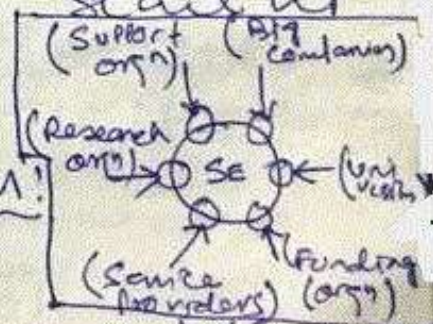 (Support orgn)
(Big Companies)
(Research orgn)
SE
(Service Providers)
(Funding (orgn)